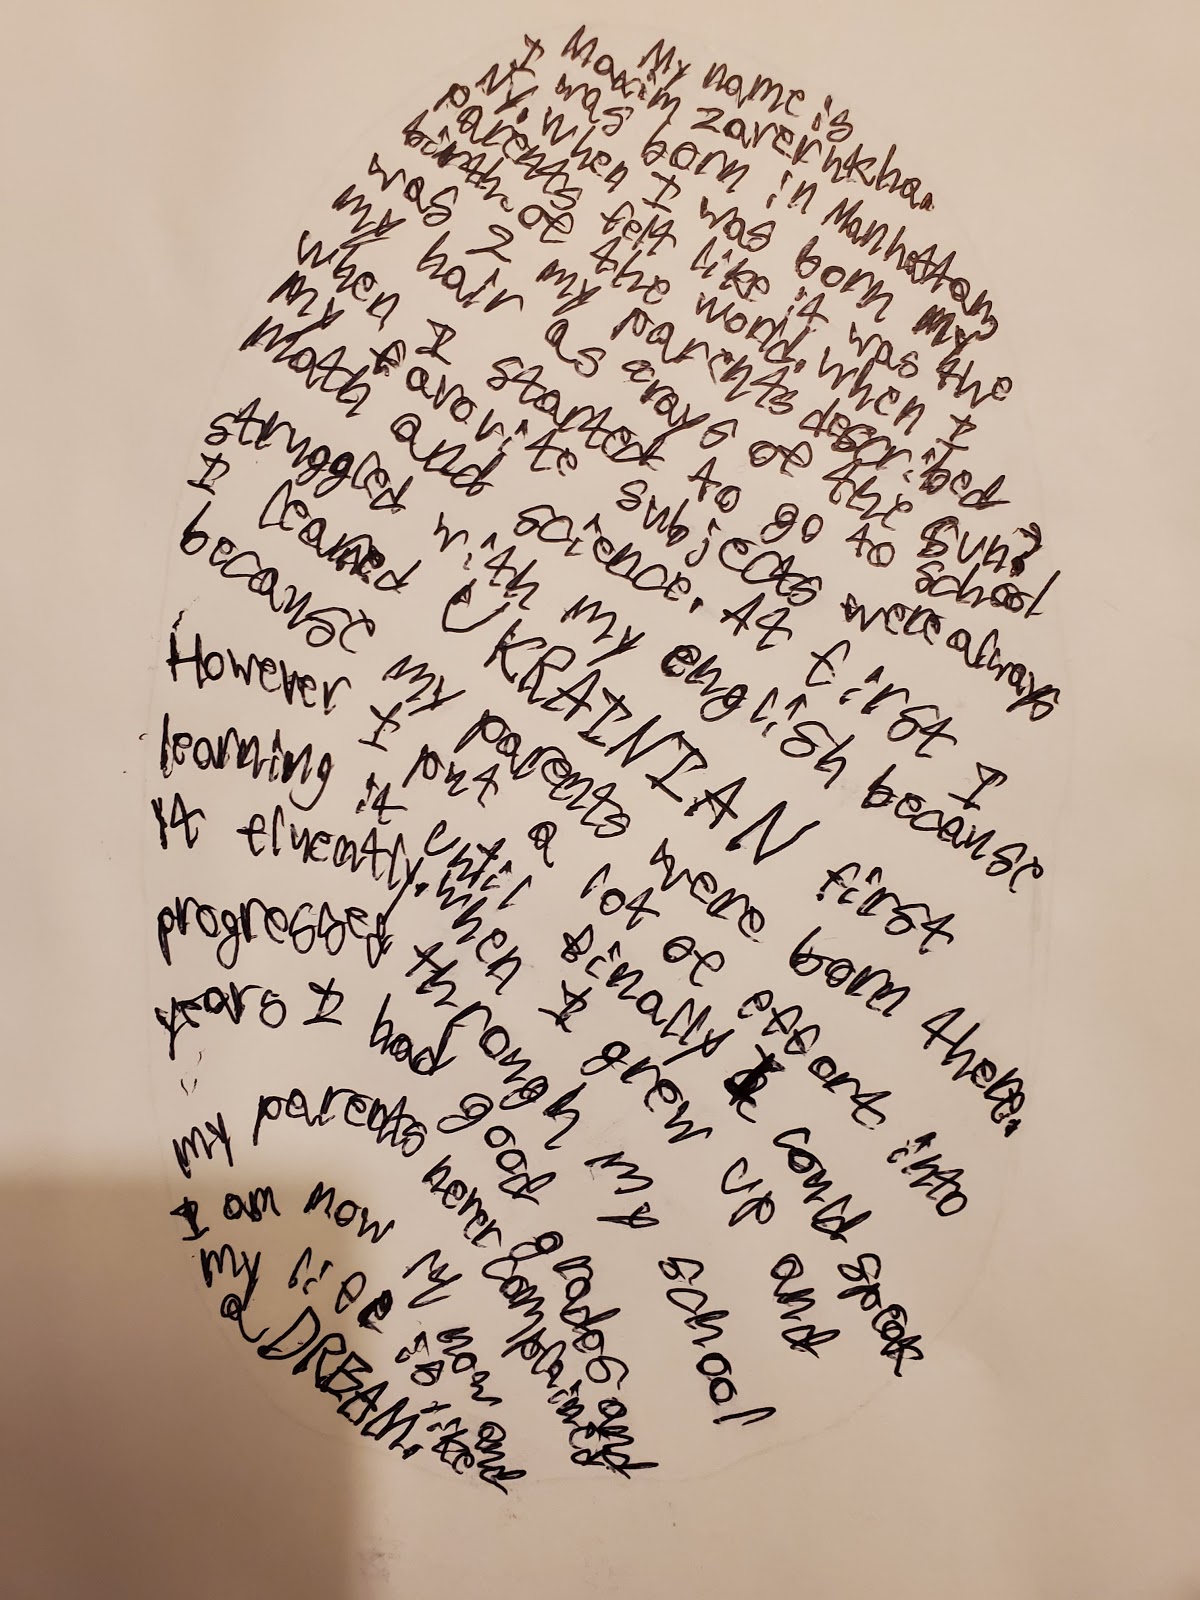 My name is
Maxim Zavernkha.
I was born in Manhattan,
NY. when I was born my
parents felt like it was the
birth of the world. when I
was 2 my parents described
my hair as arays of the sun?
when I started to go to school
my favorite subjects were always
math and science. At first I
struggled with my english because
I learned UKRAINIAN first
because my parents were born there.
However I put a lot of effort into
learning it until finally I could speak
it fluently. when I grew up and
progressed through my school
years I had good grades and
my parents never complained
I am now 14 now and
my life is like
a DREAM.